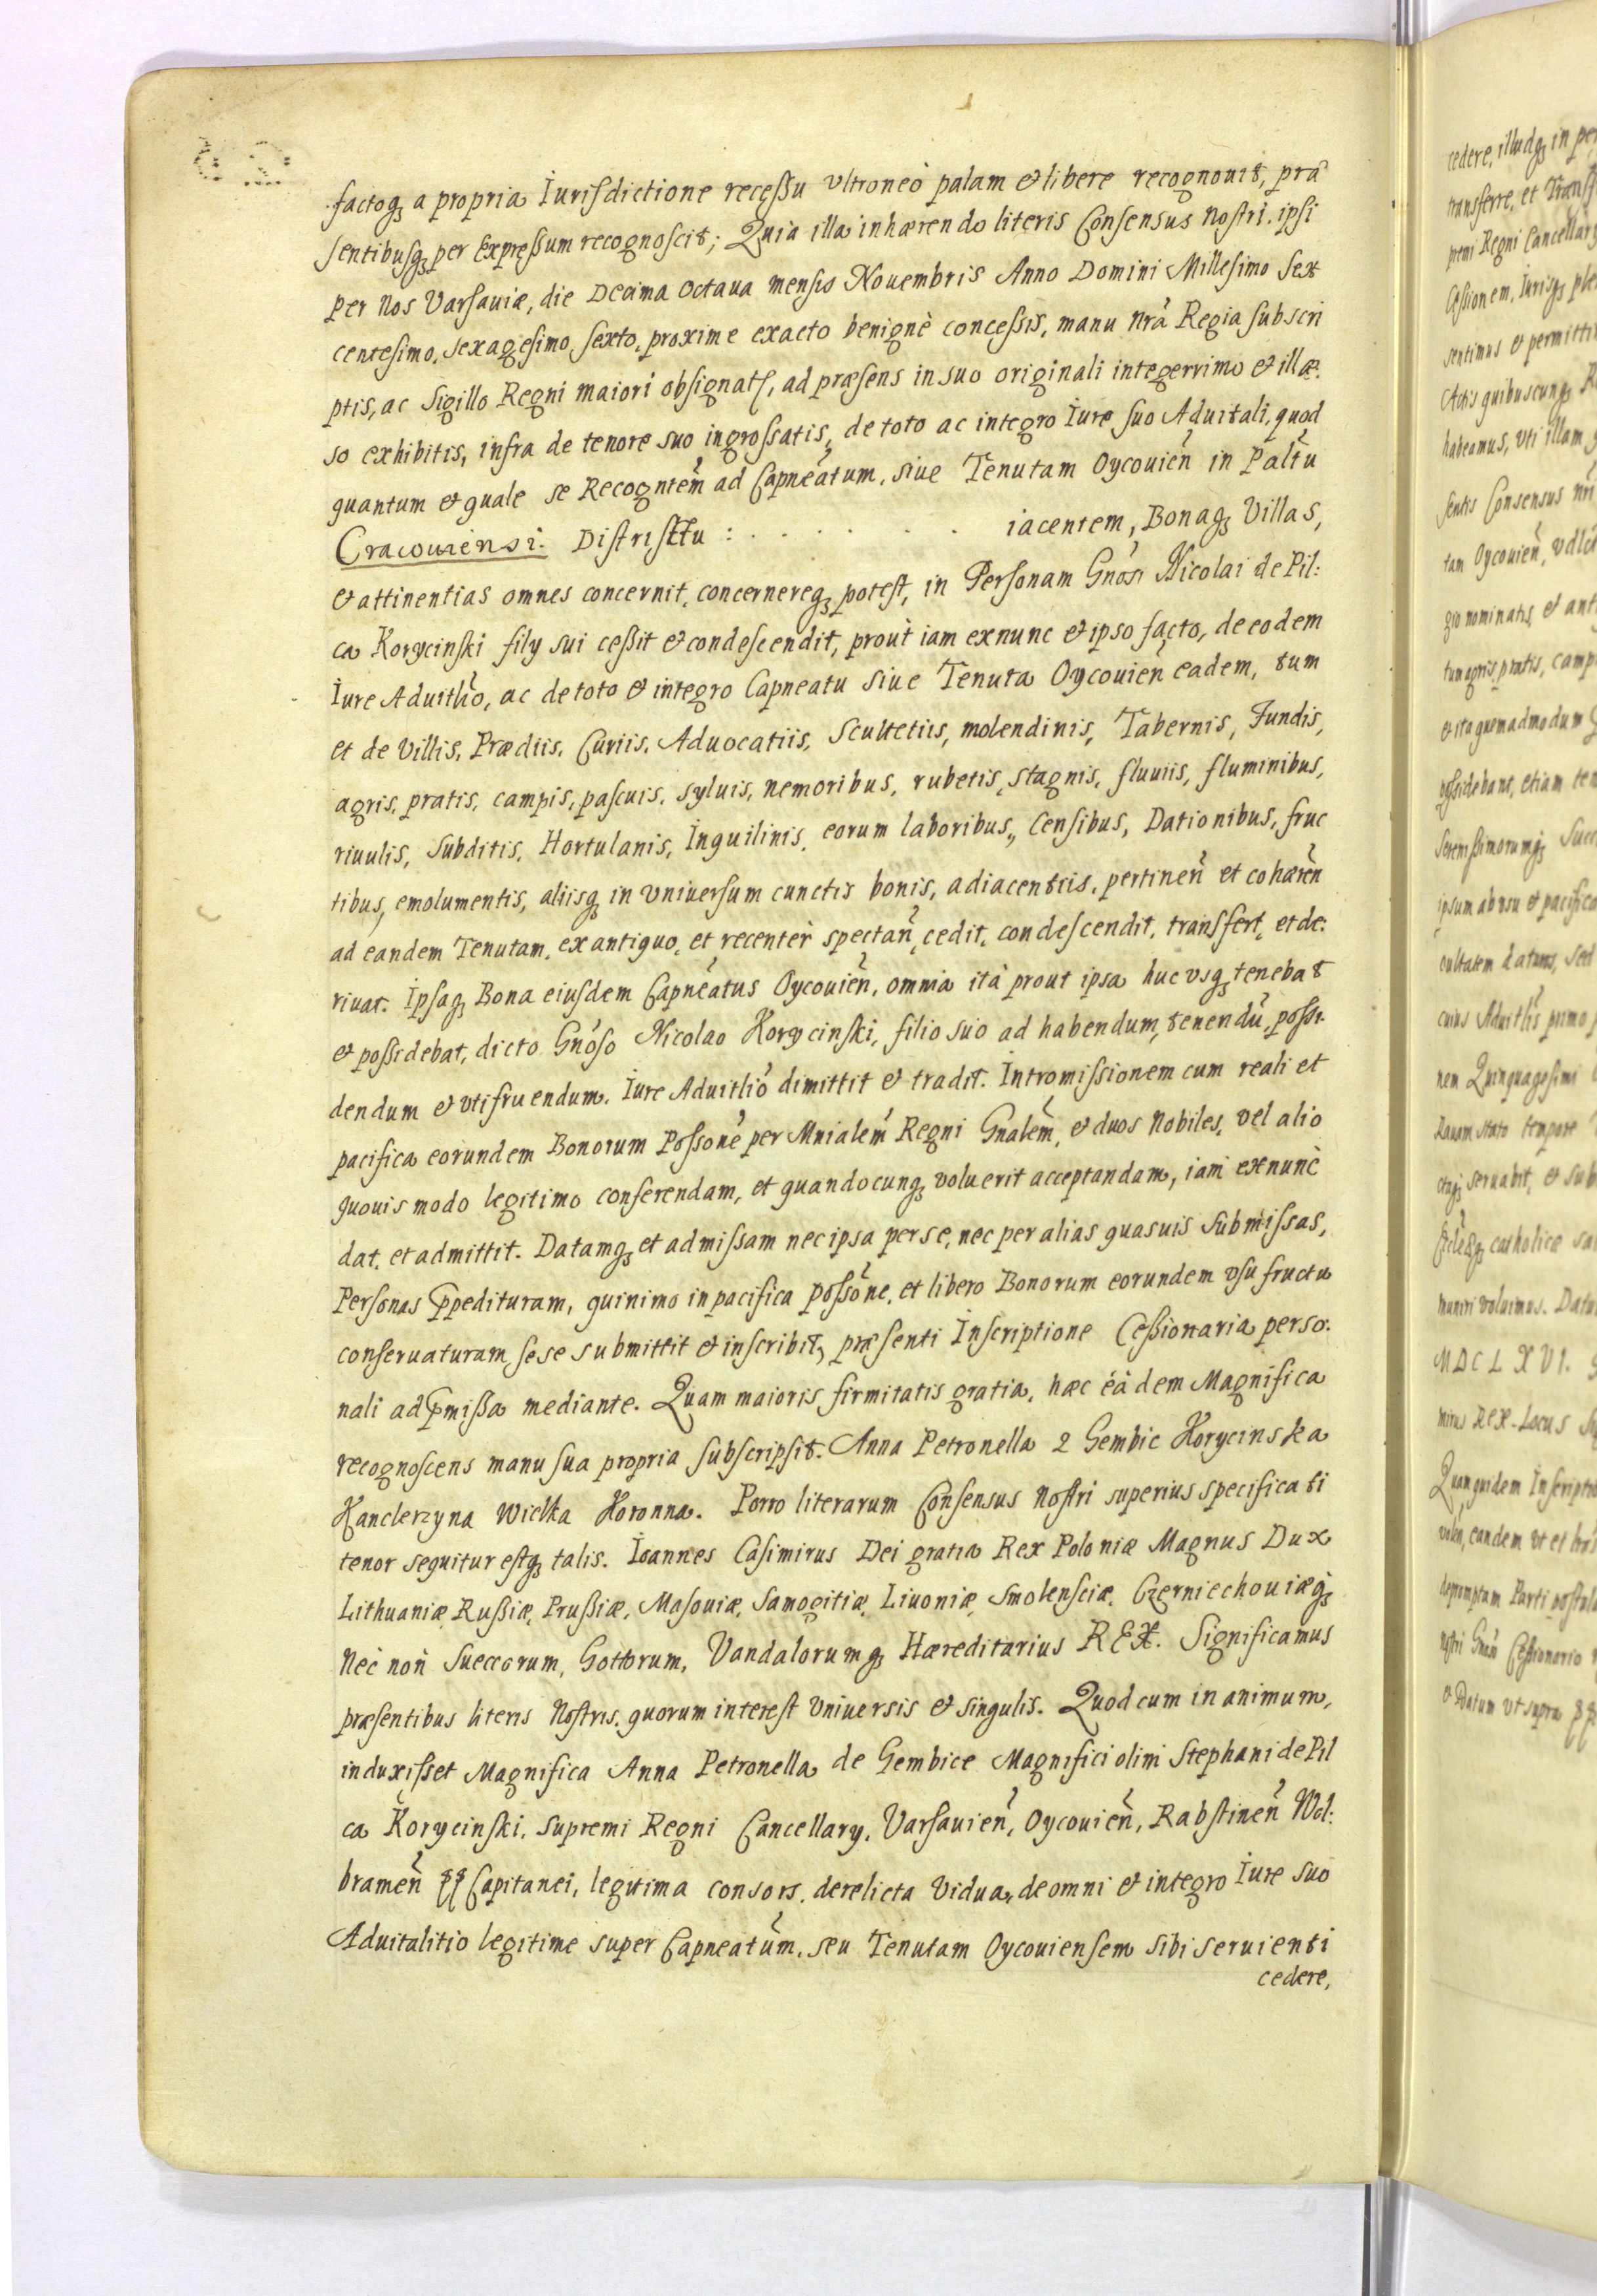 factoq́ꝫ a propria Jurisdictione recessu ultroneò palam et libere recognouit, præ
sentibusqꝫ per Expressum recognoscit; Quia illa inhærendo literis Consensus nostri, ipsi
per Nos Varsauiæ, die Decima Octaua mensis Nouembris Anno Domini Millesimo Sex
centesimo, sexagesimo sexto, proxime exacto benignè concessis, manu nrã Regia subscri
ptis, ac Sigillo Regni maiori obsignatꝭ, ad præsens in suo originali integerrimo et illæ:
so exhibitis, infra de tenore suo ingrossatis, de toto ac integro Iure suo Aduitali, quod
quantum et quale se Recogntem̃ ad Capneatum, siue Tenutam Oycouień in Paltũ
Cracouiensi. Districtu : . . . . . . iacentem, Bonaqꝫ Villas,
et attinentias omnes concernit, concernereqꝫ potest, in Personam Gnósi Nicolai de Pil:
ca Korycinski filÿ sui cessit et condescendit, prout iam exnunc et ipso facto, de eodem
Iure Aduitlió, ac de toto et integro Capneatu siue Tenuta Oycouień eadem, tum
et de Villis, Prædiis, Curiis, Aduocatiis, Scultetiis, molendinis, Tabernis, Fundis,
agris, pratis, campis, pascuis, syluis, nemoribus, rubetis, stagnis, fluuiis, fluminibus,
riuulis, Subditis, Hortulanis, Inquilinis, eorum laboribus, Censibus, Dationibus, fruc
tibus, emolumentis, aliisqꝫ in vniuersum cunctis bonis, adiacentiis, pertineń et cohæreń
ad eandem Tenutam, ex antiquo, et recenter spectań, cedit, condescendit, transfert, et de:
riuat. Ipsaqꝫ Bona eiusdem Capneatus Oycouień, omnia ità prout ipsa huc vsqꝫ tenebat
et possidebat, dicto Gnóso Nicolao Korycinski, filio suo ad habendum, tenendũ, possi:
dendum et vtifruendum. Iure Aduitlió dimittit et tradit. Intromissionem cum reali et
pacifica eorundem Bonorum Possoné per Mnialem̃ Regni Gnalem̃, et duos Nobiles, vel alio
quouis modo legitimo conferendam, et quandocunqꝫ voluerit acceptandam, iam exnunc
dat, et admittit. Datamqꝫ et admissam nec ipsa per se, nec per alias quasuis submissas,
Personas ꝓpedituram, quinimo in pacifica possóne, et libero Bonorum eorundem vsufructu
conseruaturam sese submittit et inscribit, præsenti Inscriptione Cessionaria perso:
nali ad p̃missa mediante. Quam maioris firmitatis gratia, hæc eàdem Magnifica
recognoscens manu sua propria subscripsit. Anna Petronella z Gembic Korycinska
Kanclerzyna Wielka Koronna. Porro literarum Consensus Nostri superius specificati
tenor sequitur estqꝫ talis. Ioannes Casimirus Dei gratia Rex Poloniæ Magnus Dux
Lithuaniæ, Russiæ, Prussiæ, Masouiæ, Samogitiæ, Liuoniæ, Smolensciæ, Czerniechouiæqꝫ
Nec non Sueccorum, Gottorum, Vandalorumqꝫ Hæreditarius REX. Significamus
præsentibus literis Nostris, quorum interest Vniuersis et singulis. Quod cum in animum,
induxisset Magnifica Anna Petronella de Gembice Magnifici olim Stephani de Pil
ca Korycinski, Supremi Regni Cancellarÿ, Varsauień, Oycouień, Rabstineń Wol:
brameń ꝑꝑ Capitanei, legitima consors, derelicta Vidua, de omni et integro Iure suo
Aduitalitio legitime super Capneatum̃, seu Tenutam Oycouiensem sibi seruienti
cedere,